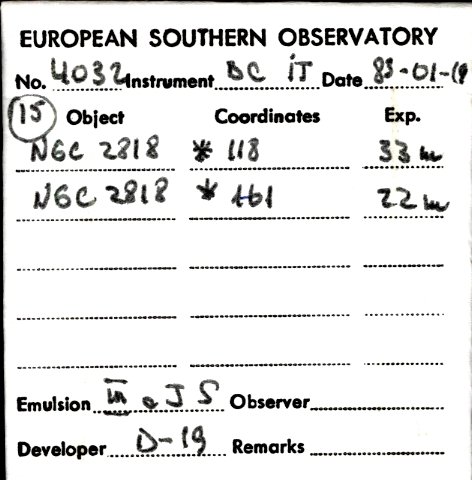 EUROPEAN SOUTHERN OBSERVATORY
No. 4032 Instrument BC IT Date 83-01-19
15 Object Coordinates Exp.
NGC 2818 * 118 33 m
NGC 2818 * 161 22 m
Emulsion III a J S Observer
Developer D-19 Remarks